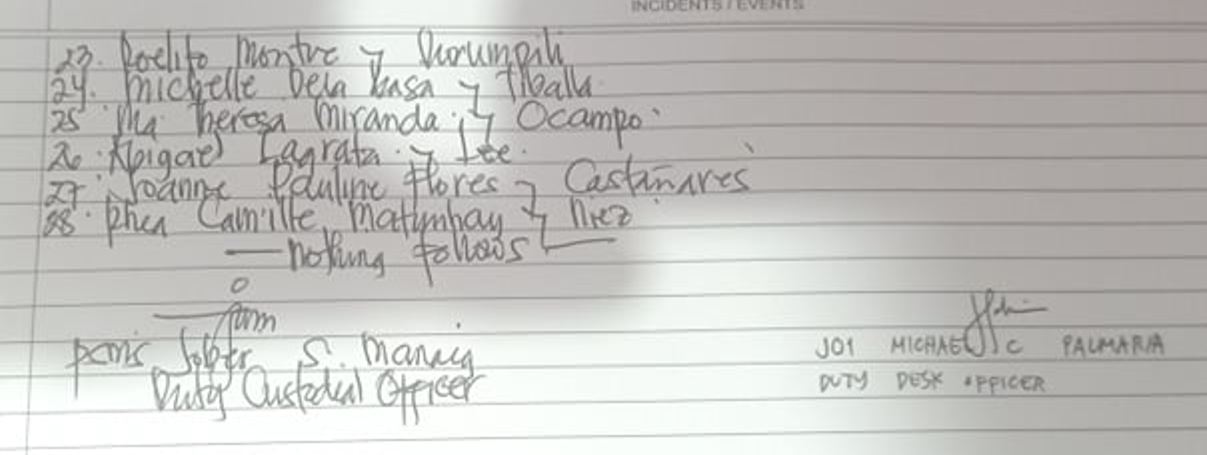 INCIDENTS / EVENTS
23. Roelito Montre y
24. Michelle Dela Masa y
25. Ma Theresa Miranda y Ocampo
26. Abigael Lagrata y Lee.
27. Joanne Pauline Flores y Castañares
28. Rhea Camille Matymhay y Niez
— Nothing follows —
S.
Duty Custodial Officer
JO1 MICHAEL C PALMARIA
DUTY DESK OFFICER